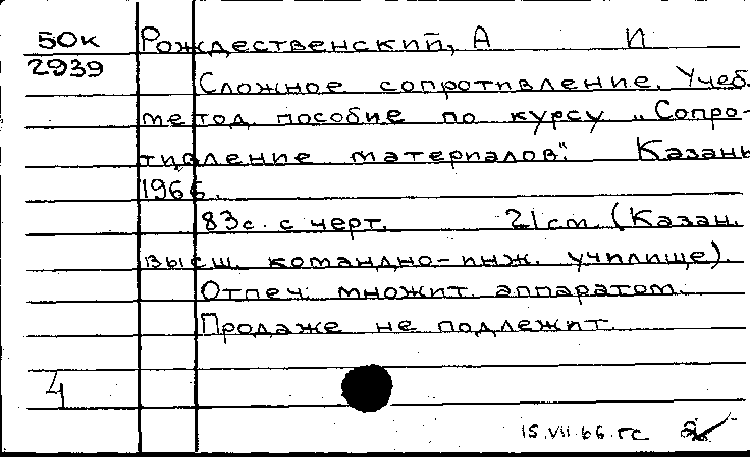 50к Рождественский, А И
2939
Сложное сопротивление. Учеб.
метод. пособие по курсу „Сопро-
тивление материалов". Казань
1966.
83с. с черт. 21cm. (Казан.
высш. командно-инж. училище).
Отпеч. множит. аппаратом.
Продаже не подлежит.
4
15.VII.66. гс